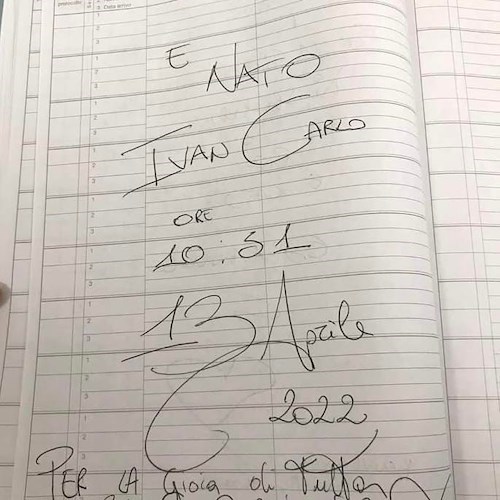 E
NATO
IVAN CARLO
ORE
10:51
13 Aprile
2022
PER LA Gioia di